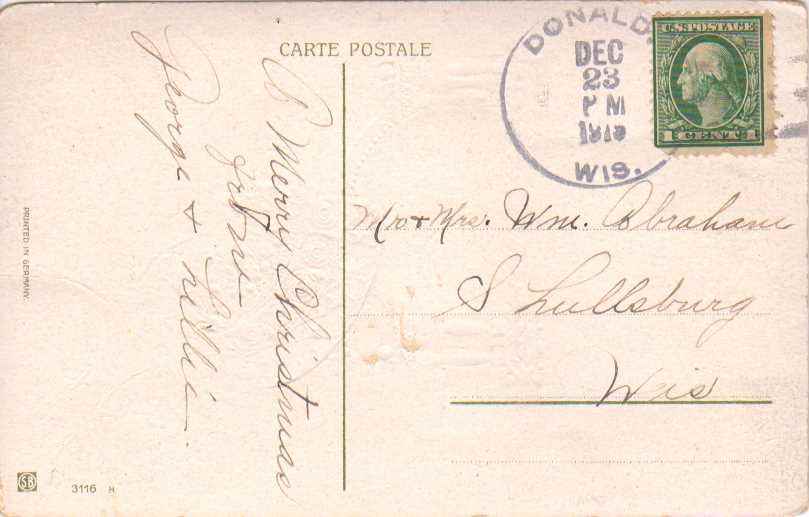 CARTE POSTALE
DONALD,
DEC
23
P M
WIS.
U.S. POSTAGE
1 CENT 1
A Merry Christmas
from
George & Lillie.
Mr. & Mrs. Wm. Abraham
Shullsburg
Wis
PRINTED IN GERMANY.
SB
3116 H